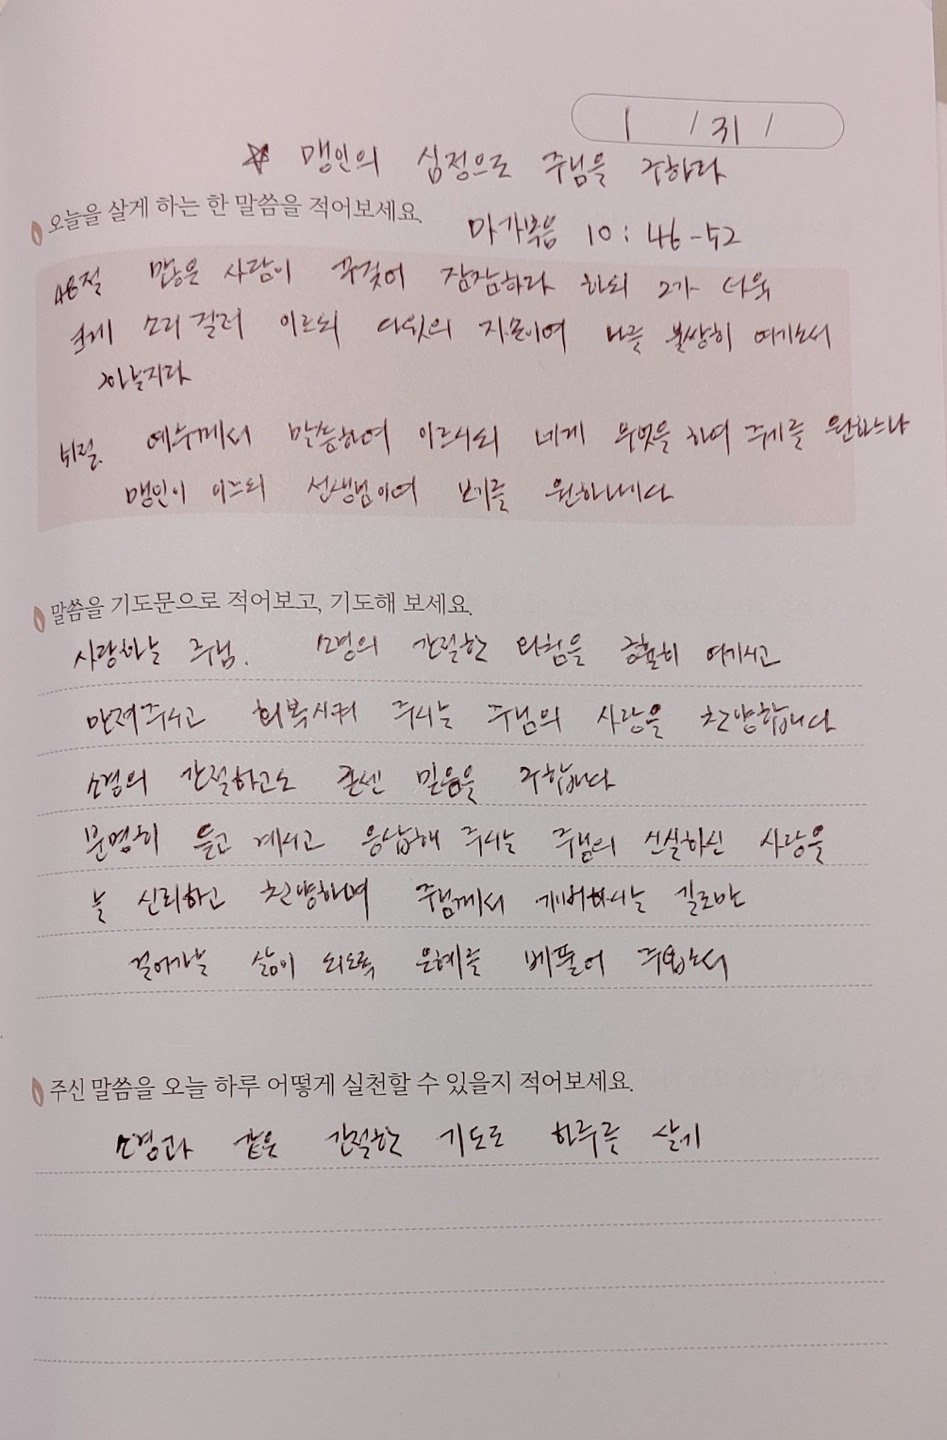 1 / 31 /
☆ 맹인의 심정으로 주님을 구하라
오늘을 살게 하는 한 말씀을 적어보세요.
마가복음 10 : 46 - 52
48절 많은 사람이 꾸짖어 잠잠하라 하되 그가 더욱
크게 소리 질러 이르되 다윗의 자손이여 나를 불쌍히 여기소서
하는지라
51절. 예수께서 말씀하여 이르시되 네게 무엇을 하여 주기를 원하느냐
맹인이 이르되 선생님이여 보기를 원하나이다
말씀을 기도문으로 적어보고, 기도해 보세요.
사랑하는 주님. 소경의 간절한 외침을 긍휼히 여기시고
만져주시고 회복시켜 주시는 주님의 사랑을 찬양합니다
소경의 간절하고도 굳센 믿음을 구합니다
분명히 듣고 계시고 응답해 주시는 주님의 신실하신 사랑을
늘 신뢰하고 찬양하며 주님께서 예비하시는 길로만
걸어가는 삶이 되도록 은혜를 베풀어 주옵소서
주신 말씀을 오늘 하루 어떻게 실천할 수 있을지 적어보세요.
소경과 같은 간절한 기도로 하루를 살기